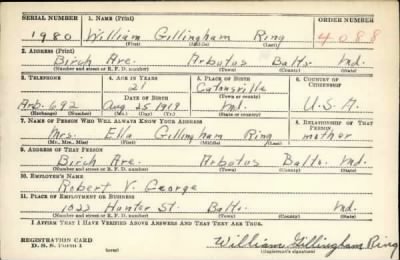 SERIAL NUMBER 1. NAME (Print) ORDER NUMBER
1980 William Gillingham Ring 4088
(First) (Middle) (Last)
2. ADDRESS (Print)
Birch Ave. Arbutus Balto. Md.
(Number and street or R. F. D. number) (Town) (County) (State)
3. TELEPHONE 4. AGE IN YEARS 5. PLACE OF BIRTH 6. COUNTRY OF CITIZENSHIP
21 Catonsville
DATE OF BIRTH (Town or county)
Arb. 692 Aug 25 1919 Md. U.S.A.
(Exchange) (Number) (Mo.) (Day) (Yr.) (State or country)
7. NAME OF PERSON WHO WILL ALWAYS KNOW YOUR ADDRESS 8. RELATIONSHIP OF THAT PERSON
Mrs. Ella Gillingham Ring mother
(Mr., Mrs., Miss) (First) (Middle) (Last)
9. ADDRESS OF THAT PERSON
Birch Ave. Arbutus Balto. Md.
(Number and street or R. F. D. number) (Town) (County) (State)
10. EMPLOYER'S NAME
Robert V. George
11. PLACE OF EMPLOYMENT OR BUSINESS
1022 Hunter St. Balto. Md.
(Number and street or R. F. D. number) (Town) (County) (State)
I AFFIRM THAT I HAVE VERIFIED ABOVE ANSWERS AND THAT THEY ARE TRUE.
REGISTRATION CARD
D. S. S. Form 1 (over) William Gillingham Ring
(Registrant's signature)